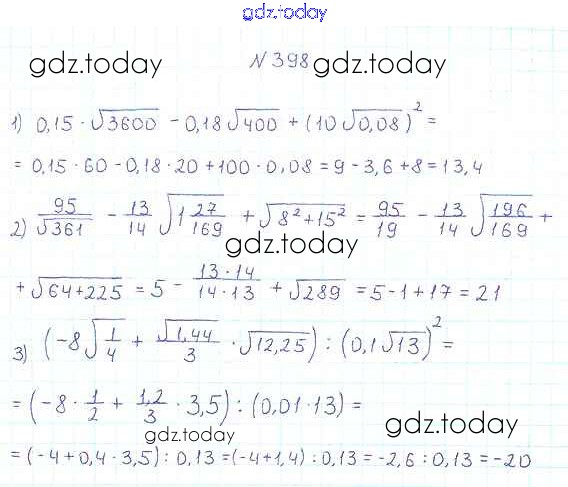 gdz.today
gdz.today № 398 gdz.today
1) 0,15 · √3600 − 0,18√400 + (10√0,08)² =
= 0,15 · 60 − 0,18 · 20 + 100 · 0,08 = 9 − 3,6 + 8 = 13,4
2) 95/√361 − 13/14 √(1 27/169) + √(8² + 15²) = 95/19 − 13/14 √(196/169) +
gdz.today
+ √(64+225) = 5 − (13 · 14)/(14 · 13) + √289 = 5 − 1 + 17 = 21
3) (−8√(1/4) + √1,44/3 · √12,25) : (0,1√13)² =
= (−8 · 1/2 + 1,2/3 · 3,5) : (0,01 · 13) =
gdz.today gdz.today
= (−4 + 0,4 · 3,5) : 0,13 = (−4 + 1,4) : 0,13 = −2,6 : 0,13 = −20